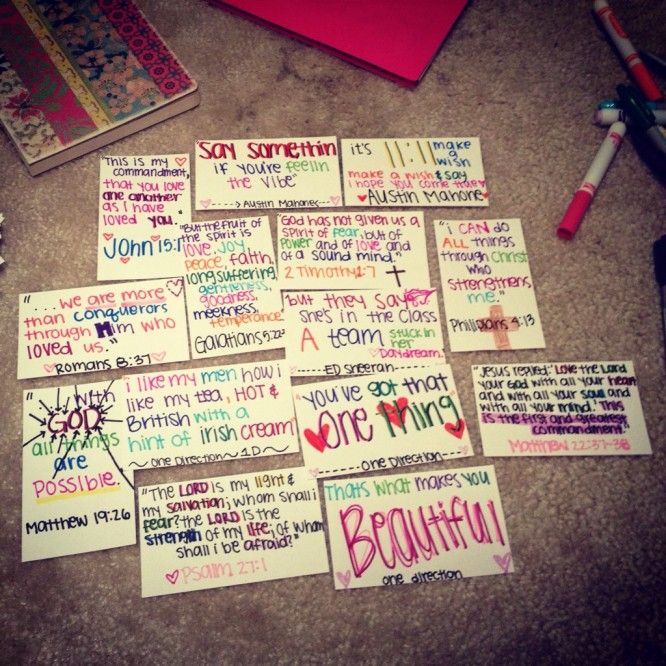 "This is my
commandment,
that you love
one another
as I have
loved you."
John 15:1
"Say Somethin
if you're feelin
the vibe"
Austin Mahone
it's 11:11 make
a
wish
make a wish & say
i hope you come true
Austin Mahone
"But the fruit of
the spirit is
love, joy,
peace, faith,
longsuffering,
gentleness,
goodness,
meekness,
temperance."
Galatians 5:22
"God has not given us a
spirit of fear, but of
power and of love and
of a sound mind."
2 Timothy 1:7
"i CAN do
ALL things
through Christ
who
strengthens
me."
Philippians 4:13
"....we are more
than conquerors
through Him who
loved us."
Romans 8:37
but they say
she's in the Class
A team stuck in
her
Daydream.
ED Sheeran
"with
GOD
all things
are
POSSIBLE.
Matthew 19:26
i like my men how i
like my tea, HOT &
British with a
hint of irish cream
One Direction ~ 1D
"you've got that
One Thing
one direction
"Jesus replied: 'Love the Lord
your God with all your heart
and with all your soul and
with all your mind.' This
is the first and greatest
commandment."
Matthew 22:37-38
"The LORD is my light &
my salvation; whom shall i
fear? the LORD is the
strength of my life; of whom
shall i be afraid?"
Psalm 27:1
Thats what makes you
Beautiful
one direction